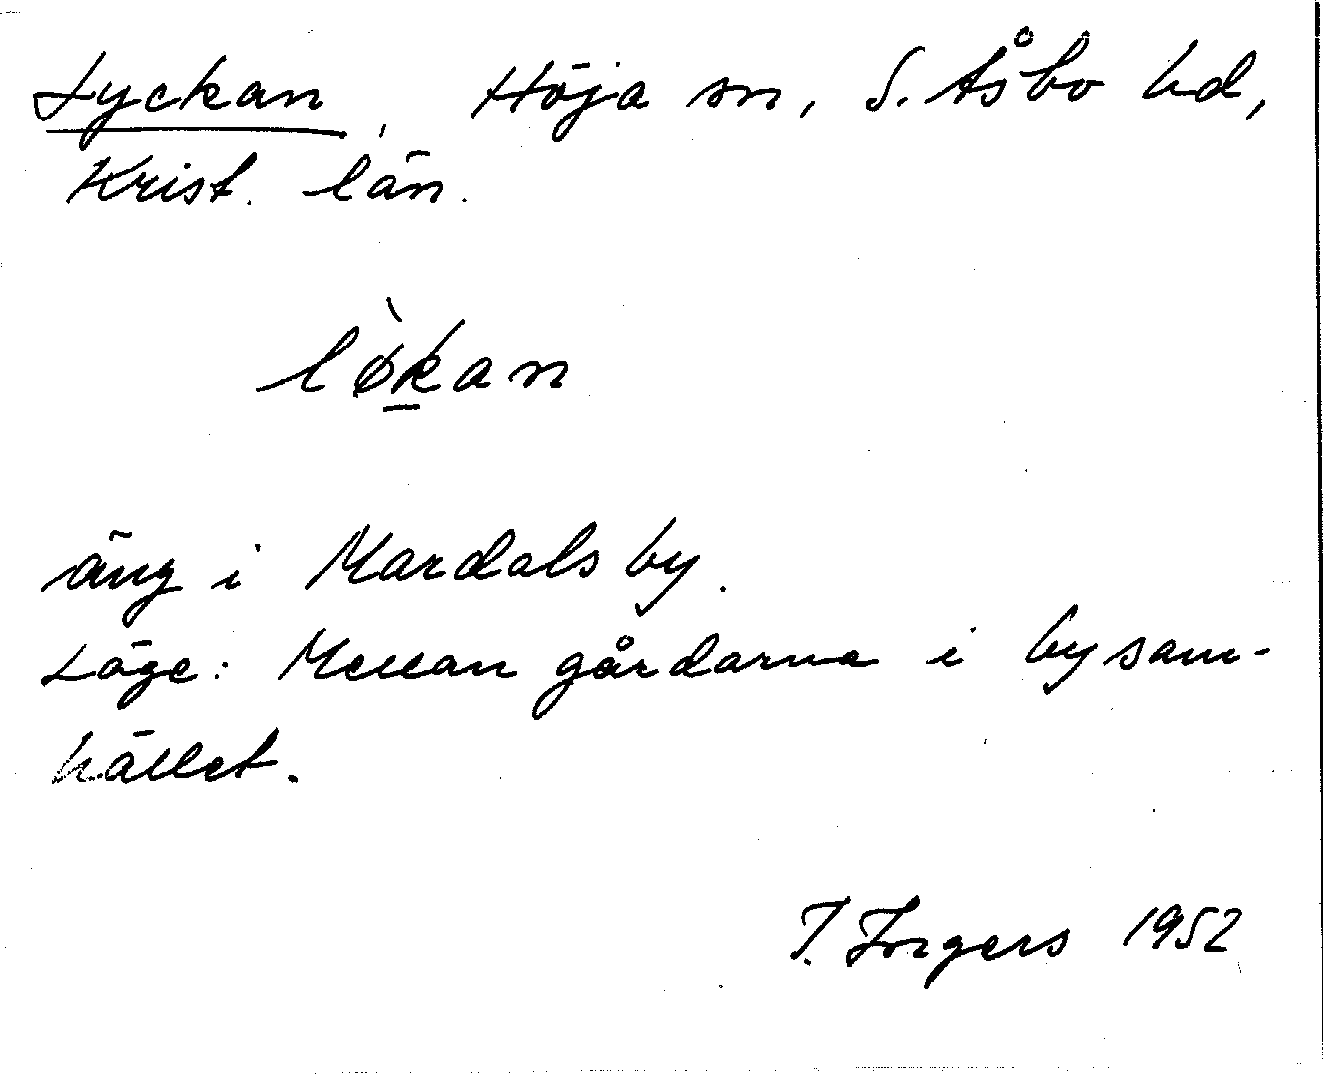 Lyckan, Höja sn, S. Åsbo hd,
Krist. län.
lø̀k̲an
äng i Mardals by.
Läge: Mellan gårdarna i bysam-
hället.
I. Ingers 1952